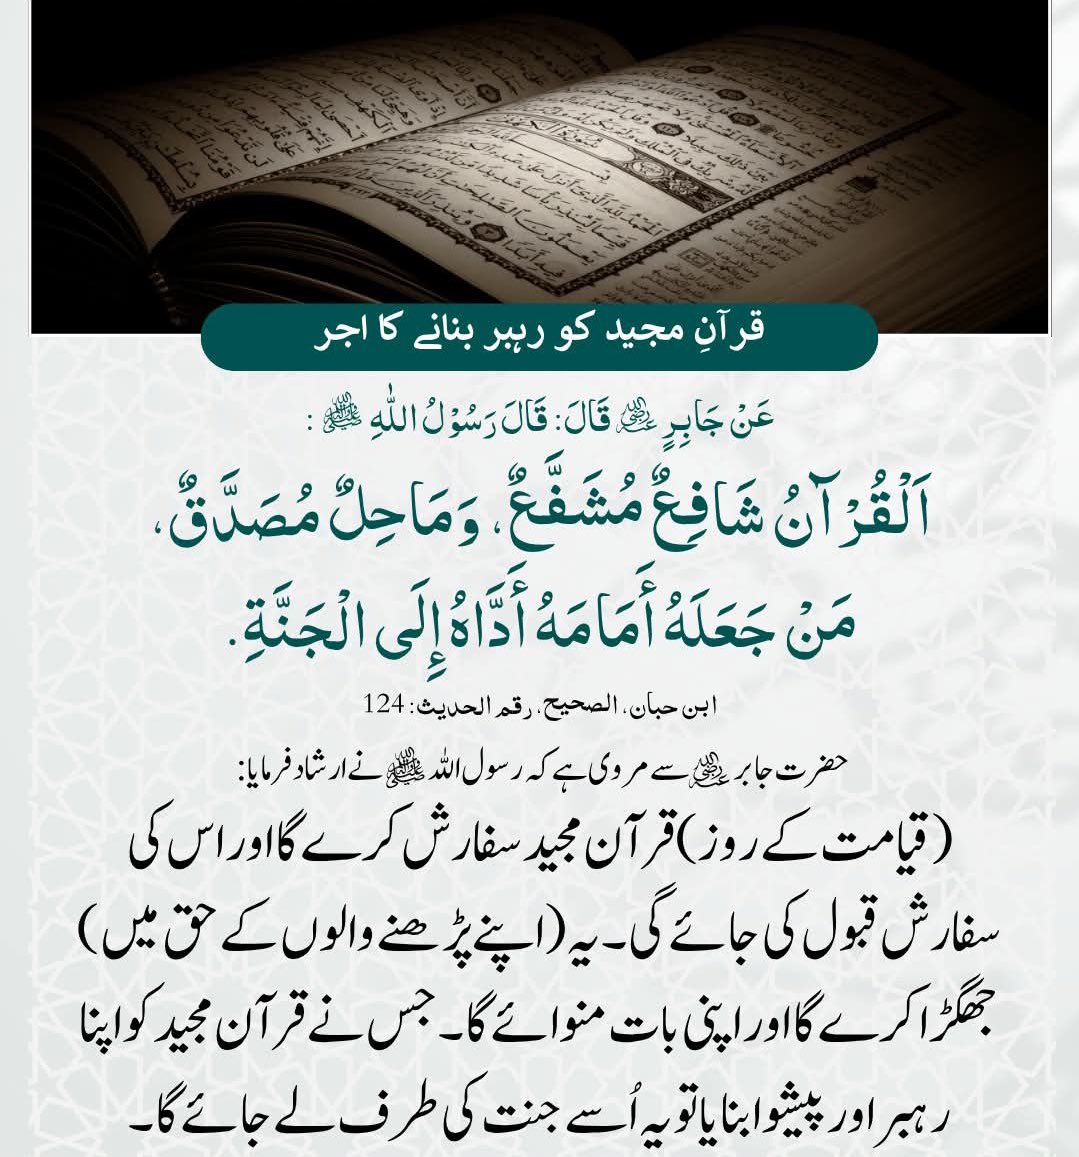 قرآنِ مجید کو رہبر بنانے کا اجر
عَنْ جَابِرٍ رضی اللہ عنہ قَالَ: قَالَ رَسُوْلُ اللّٰهِ ﷺ :
اَلْقُرْآنُ شَافِعٌ مُشَفَّعٌ، وَمَاحِلٌ مُصَدَّقٌ،
مَنْ جَعَلَهُ أَمَامَهُ أَدَّاهُ إِلَى الْجَنَّةِ.
ابن حبان، الصحیح، رقم الحدیث: 124
حضرت جابر رضی اللہ عنہ سے مروی ہے کہ رسول اللہ ﷺ نے ارشاد فرمایا:
(قیامت کے روز) قرآن مجید سفارش کرے گا اور اس کی
سفارش قبول کی جائے گی۔ یہ (اپنے پڑھنے والوں کے حق میں)
جھگڑا کرے گا اور اپنی بات منوائے گا۔ جس نے قرآن مجید کو اپنا
رہبر اور پیشوا بنایا تو یہ اُسے جنت کی طرف لے جائے گا۔